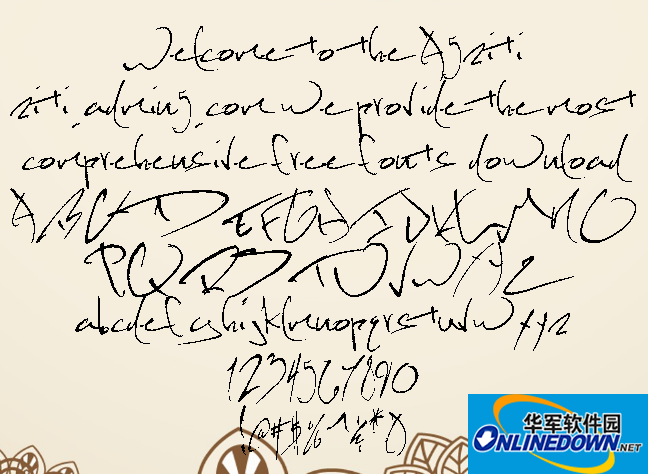 Welcome to the Aziti
ziti.admin5.com We provide the most
comprehensive free fonts download
ABCDEFGHIJKLMNO
PQRSTUVWXYZ
abcdefghijklmnopqrstuvwxyz
1234567890
!@#$%^&*()
华军软件园
ONLINEDOWN.NET